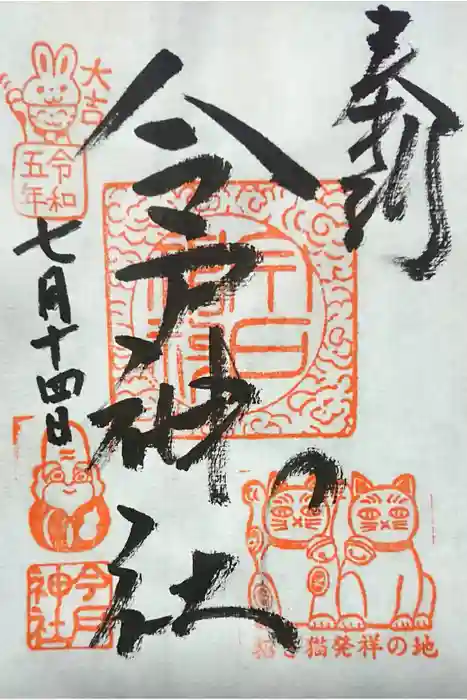 奉拝
今戸神社
大吉
令和五年
七月十四日
今戸神社
招き猫発祥の地